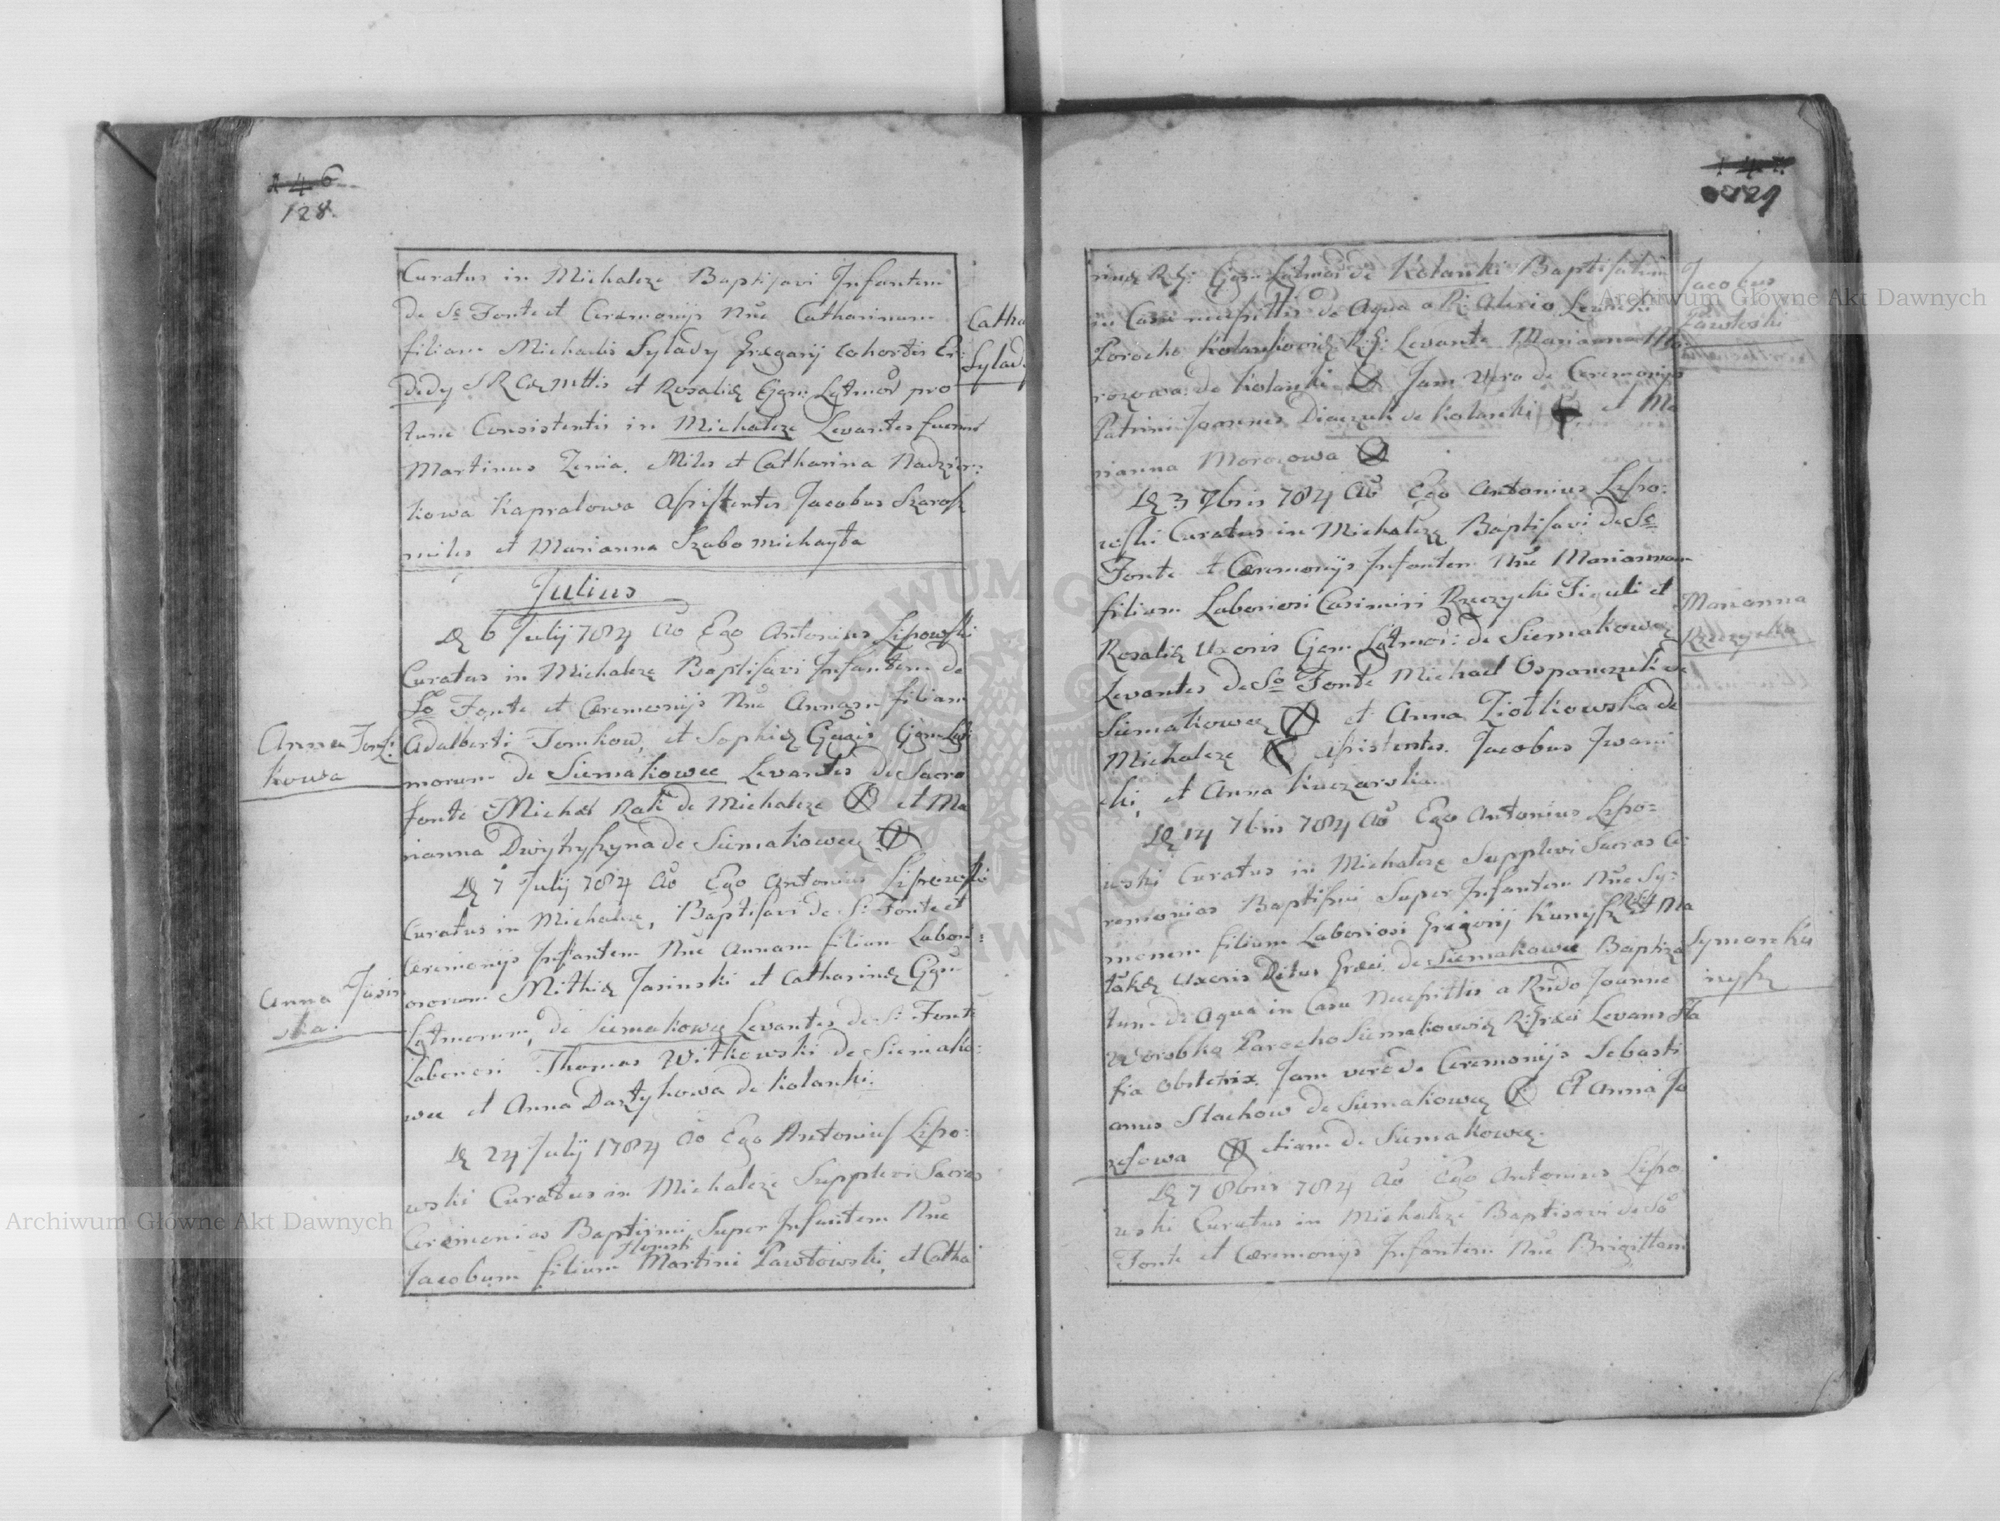 146
128.
Curatus in Michalcze Baptisavi Infantem
de So Fonte et Ceremonijs Nne Catharinam
filiam Michaelis Sylady Gregarij Cohortis Er:
dedy et Rosaliæ Cjgm: Lgtmor pro
tunc Consistentis in Michalcze Levantes fuerunt
Martinus Zenia. Miles et Catharina Nadzier:
kowa Kapralowa Assistentes Jacobus Szarosz
miles et Marianna Szabo michayta
Catha
Sylady
Julius
Dę 6 Julij 784 Ao Ego Antonius Lipowski
Curatus in Michalcze Baptisavi Infantem de
So Fonte et Ceremonijs Nne Annam filiam
Adalberti Tomkow, et Sophiæ Cjgm Lgt
morum de Siemakowce Levantes de Sacro
Fonte Michael Rak de Michalcze et Ma
rianna Dmytryszyna de Siemakowce
Anna Tom:
kowa
Dę 7 Julij 784 Ao Ego Antonius Lipowski
Curatus in Michalcze, Baptisavi de So Fonte et
Ceremonijs Infantem Nne Annam filiam Labori:
osorum Mathiæ Jasinski et Catharinæ Cjgm
Lgtmorum, de Siemakowce Levantes de So Fonte
Laboriosi Thomas Witkowski de Siemako:
wce et Anna Dartykowa de Kolanki.
Anna Jasin
ska.
Dę 24 Julij 1784 Ao Ego Antonius Lipo:
wski Curatus in Michalcze Supplevi Sacras
Ceremonias Baptismi Super Infantem Nne
Jacobum filium Martini Pawłowski, et Catha
147
129
rinæ Cjgm Lgtmor de Kolanki Baptisatum
in Casu necessitatis de Aqua a
Parocho Kolankoviæ R:G: Levante Marianna Mo
rozowa de Kolanki Jam vero de Ceremonijs
Patrini Joannes Diaczuk de Kolanki et Ma
rianna Morozowa
Jacobus
Pawłoski
Dę 3 7bris 784 Ao Ego Antonius Lipo:
wski Curatus in Michalcze Baptisavi de So
Fonte et Ceremonijs Infantem Nne Mariannam
filiam Laboriosi Casimiri Rzeczycki Figuli et
Rosaliæ Uxoris Cjgm Lgtmor: de Siemakowce
Levantes de So Fonte Michael Ospanczuk de
Siemakowce et Anna Ziołkowska de
Michalcze Assistentes. Jacobus Iwani
cki, et Anna Kuczarska.
Marianna
Rzeczycka
Dę 14 7bris 784 Ao Ego Antonius Lipo=
wski Curatus in Michalcze Supplevi Sacras Ce
remonias Baptismi Super Infantem Nne Sy:
monem filium Laboriosi Grzegorij et Na
Uxoris Ritus Græci de Siemakowce Baptiza
tum de Aqua in Casu Necessitatis a Rndo Joanne
Worobko Parocho Siemakowiæ R:Græci Levans Ha
fia Obstetrix. Jam vero de Ceremonijs Sebasti
anus Stachow de Siemakowce Et Anna Jo
zefowa etiam de Siemakowce.
Symon Ku
Dę 7 8bris 784 Ao Ego Antonius Lipo
wski Curatus in Michalcze Baptisavi de So
Fonte et Ceremonijs Infantem Nne Brigittam
Archiwum Główne Akt Dawnych
Archiwum Główne Akt Dawnych